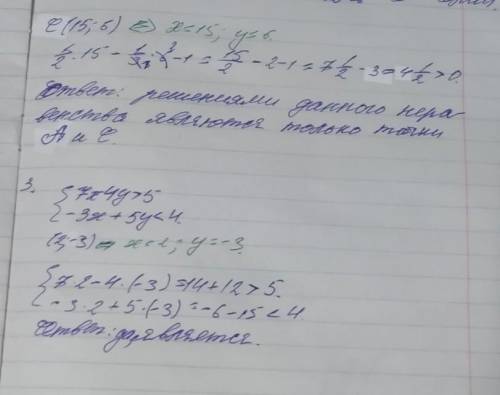 C(15; 6) ⇔ x=15; y=6.
1/2 · 15 − 1/3 · 6 − 1 = 15/2 − 2 − 1 = 7 1/2 − 3 = 4 1/2 > 0.
Ответ: решениями данного нера-
венства являются только точки
А и С.
3. {7x 4y > 5
−3x + 5y < 4.
(2; −3) x=2; y=−3.
{7·2 − 4·(−3) = 14 + 12 > 5.
−3·2 + 5·(−3) = −6 − 15 < 4
Ответ: да, является.